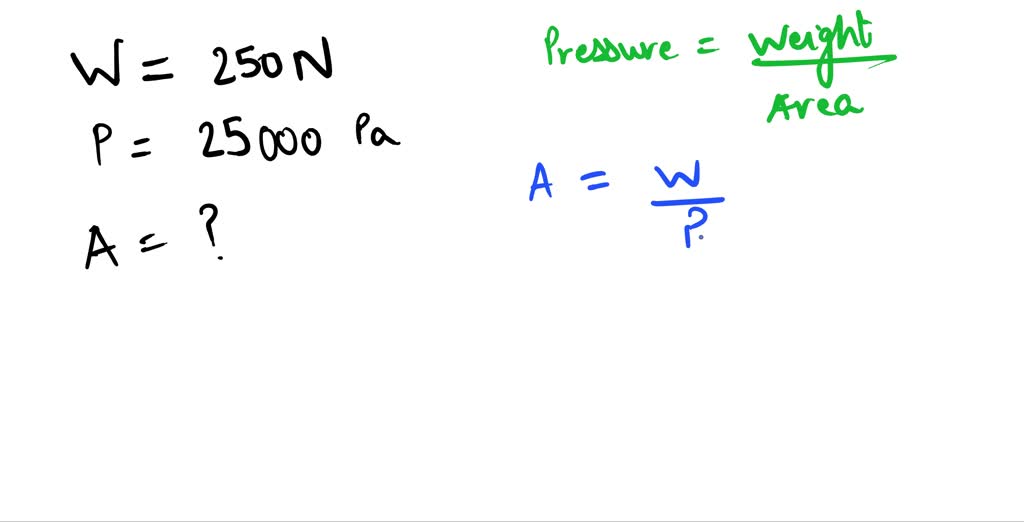 W = 250 N
P = 25000 Pa
A = ?
Pressure = Weight
Area
A = W
P